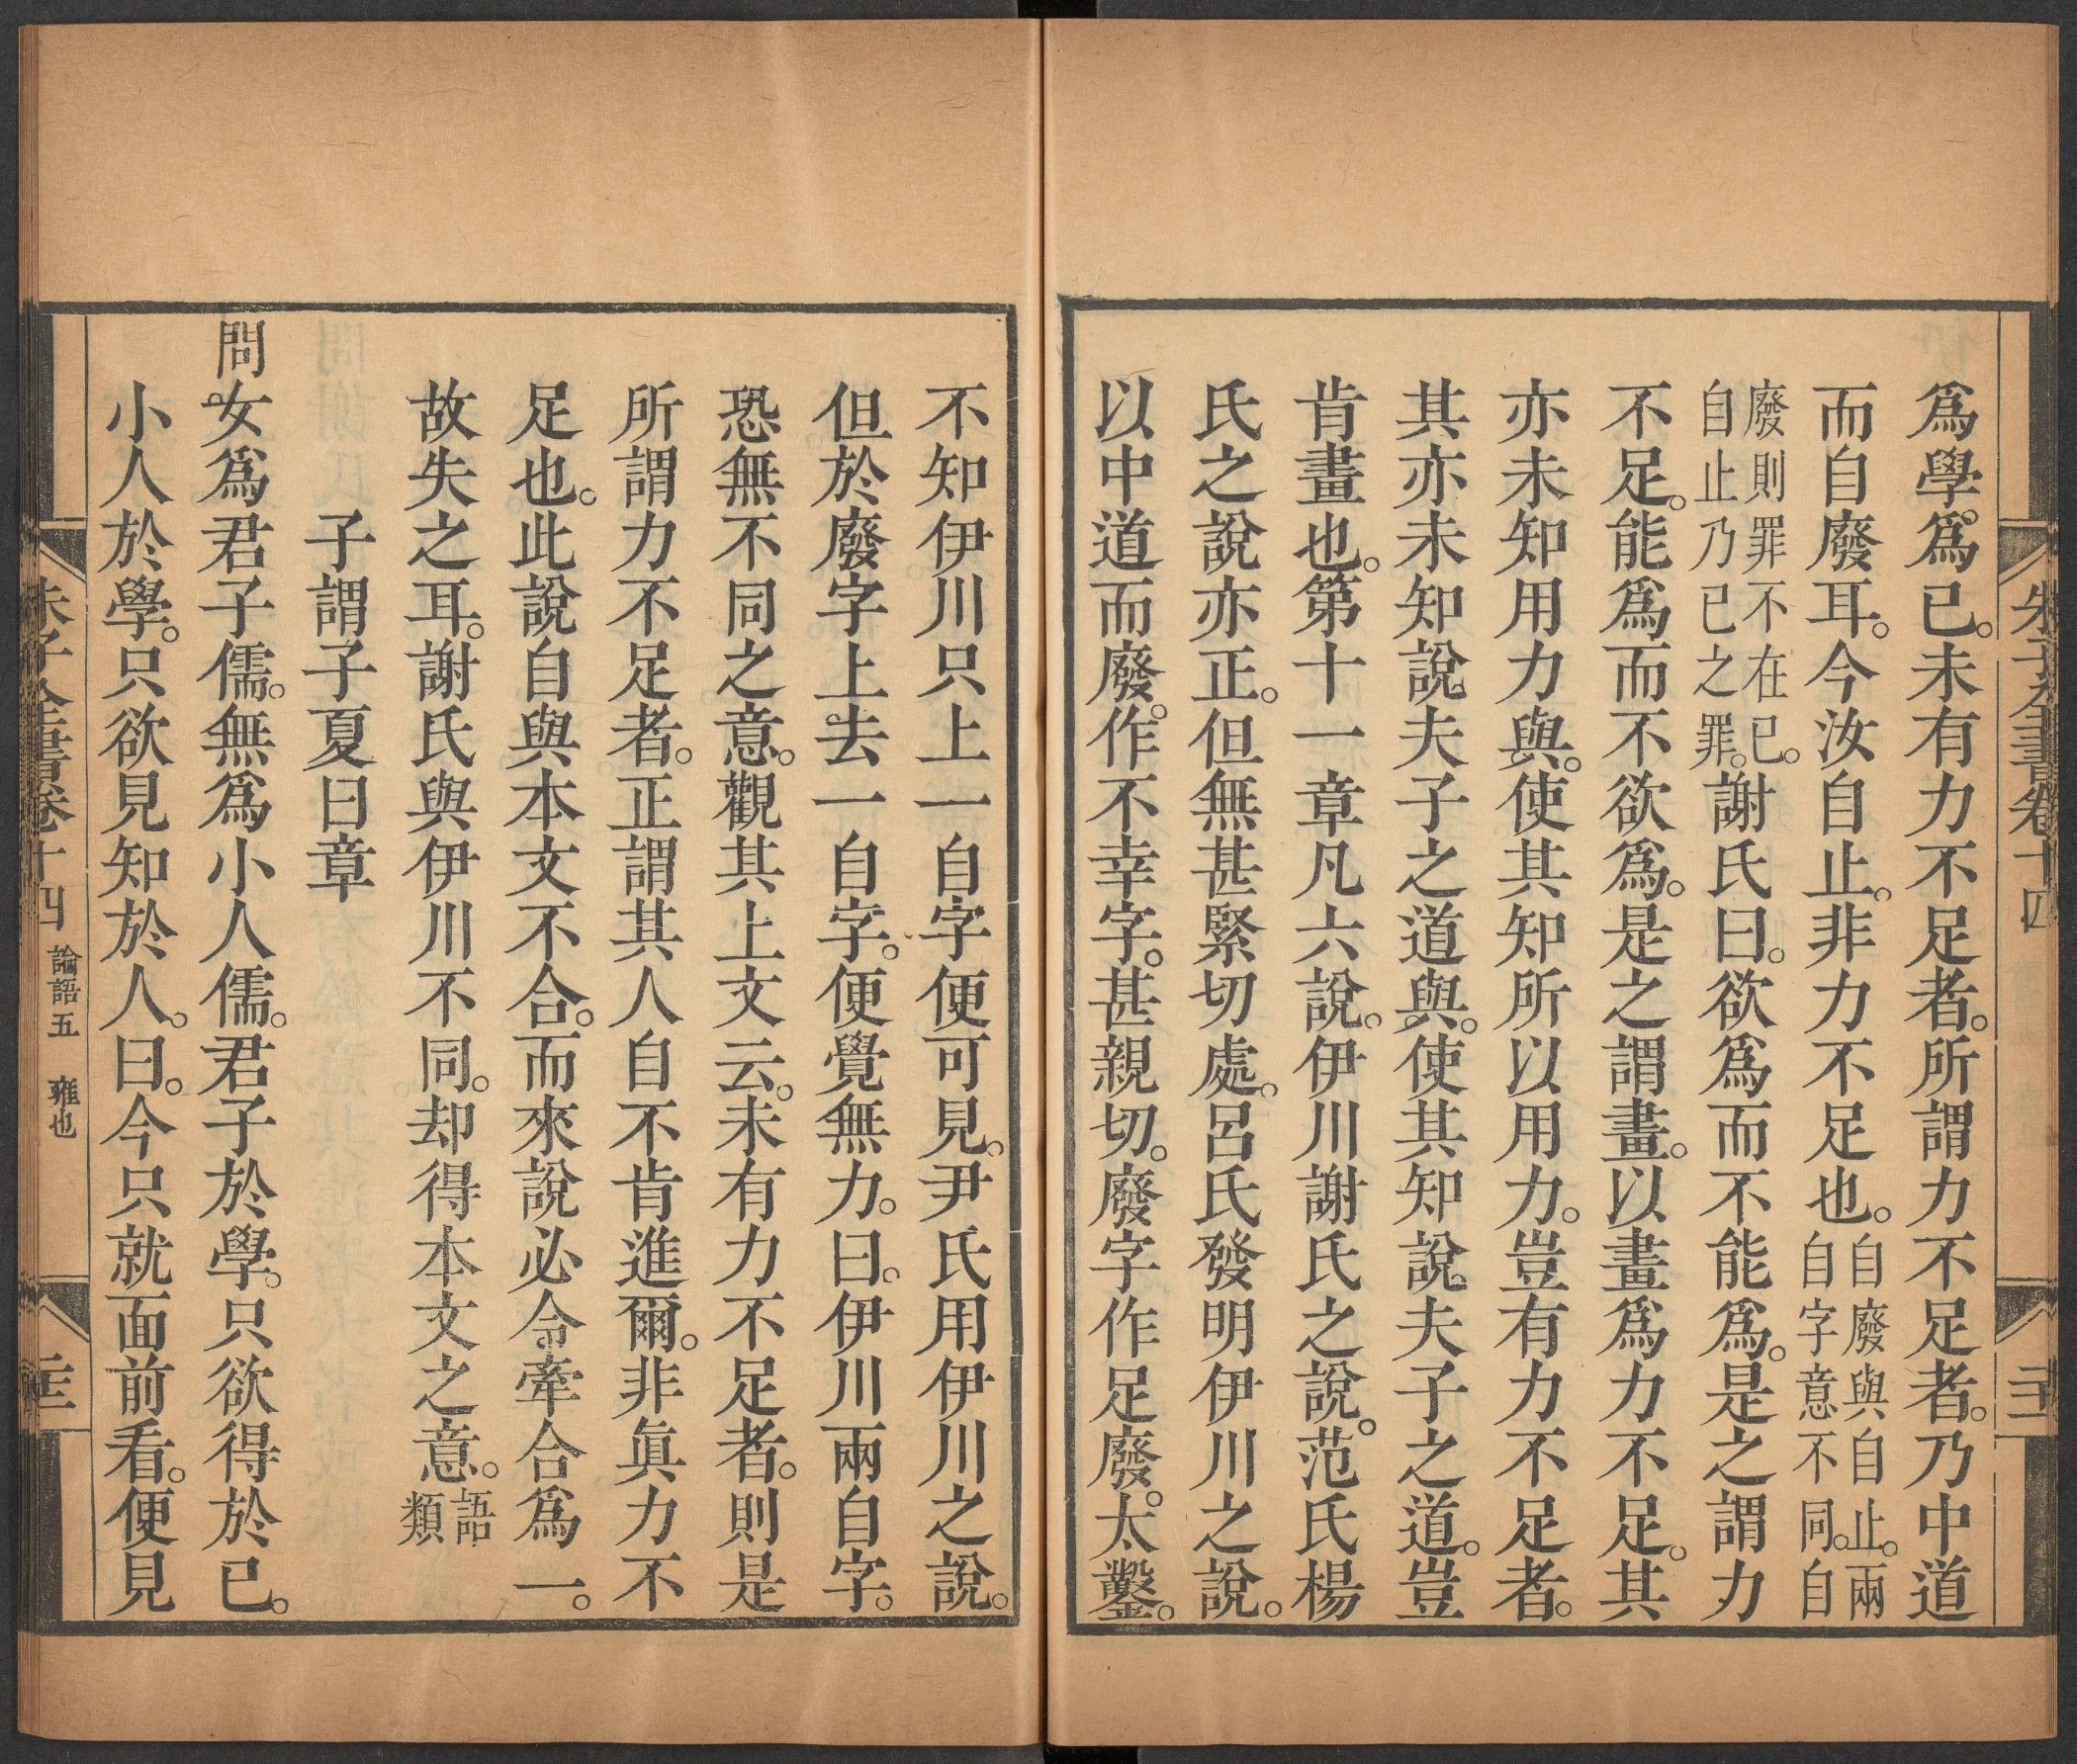 朱子全書卷十四
為學。為已。未有力不足者。所謂力不足者。乃中道
而自廢耳。今汝自止。非力不足也。自廢與自止。兩自字意不同。自
廢則罪不在已。自止乃已之罪。謝氏曰。欲為而不能為。是之謂力
不足。能為而不欲為。是之謂畫。以畫為力不足。其
亦未知用力與。使其知所以用力。豈有力不足者。
其亦未知說夫子之道與。使其知說夫子之道。豈
肯畫也。第十一章凡六說。伊川謝氏之說。范氏楊
氏之說亦正。但無甚緊切處。呂氏發明伊川之說。
以中道而廢。作不幸字。甚親切。廢字作足廢。太鑿。
不知伊川只上一自字便可見。尹氏用伊川之說。
但於廢字上去一自字。便覺無力。曰。伊川兩自字。
恐無不同之意。觀其上文云。未有力不足者。則是
所謂力不足者。正謂其人自不肯進爾。非眞力不
足也。此說自與本文不合。而來說必令牽合為一。
故失之耳。謝氏與伊川不同。却得本文之意。語類
子謂子夏曰章
問女為君子儒。無為小人儒。君子於學。只欲得於已。
小人於學。只欲見知於人。曰。今只就面前看。便見
朱子全書卷十四 論語五 雍也